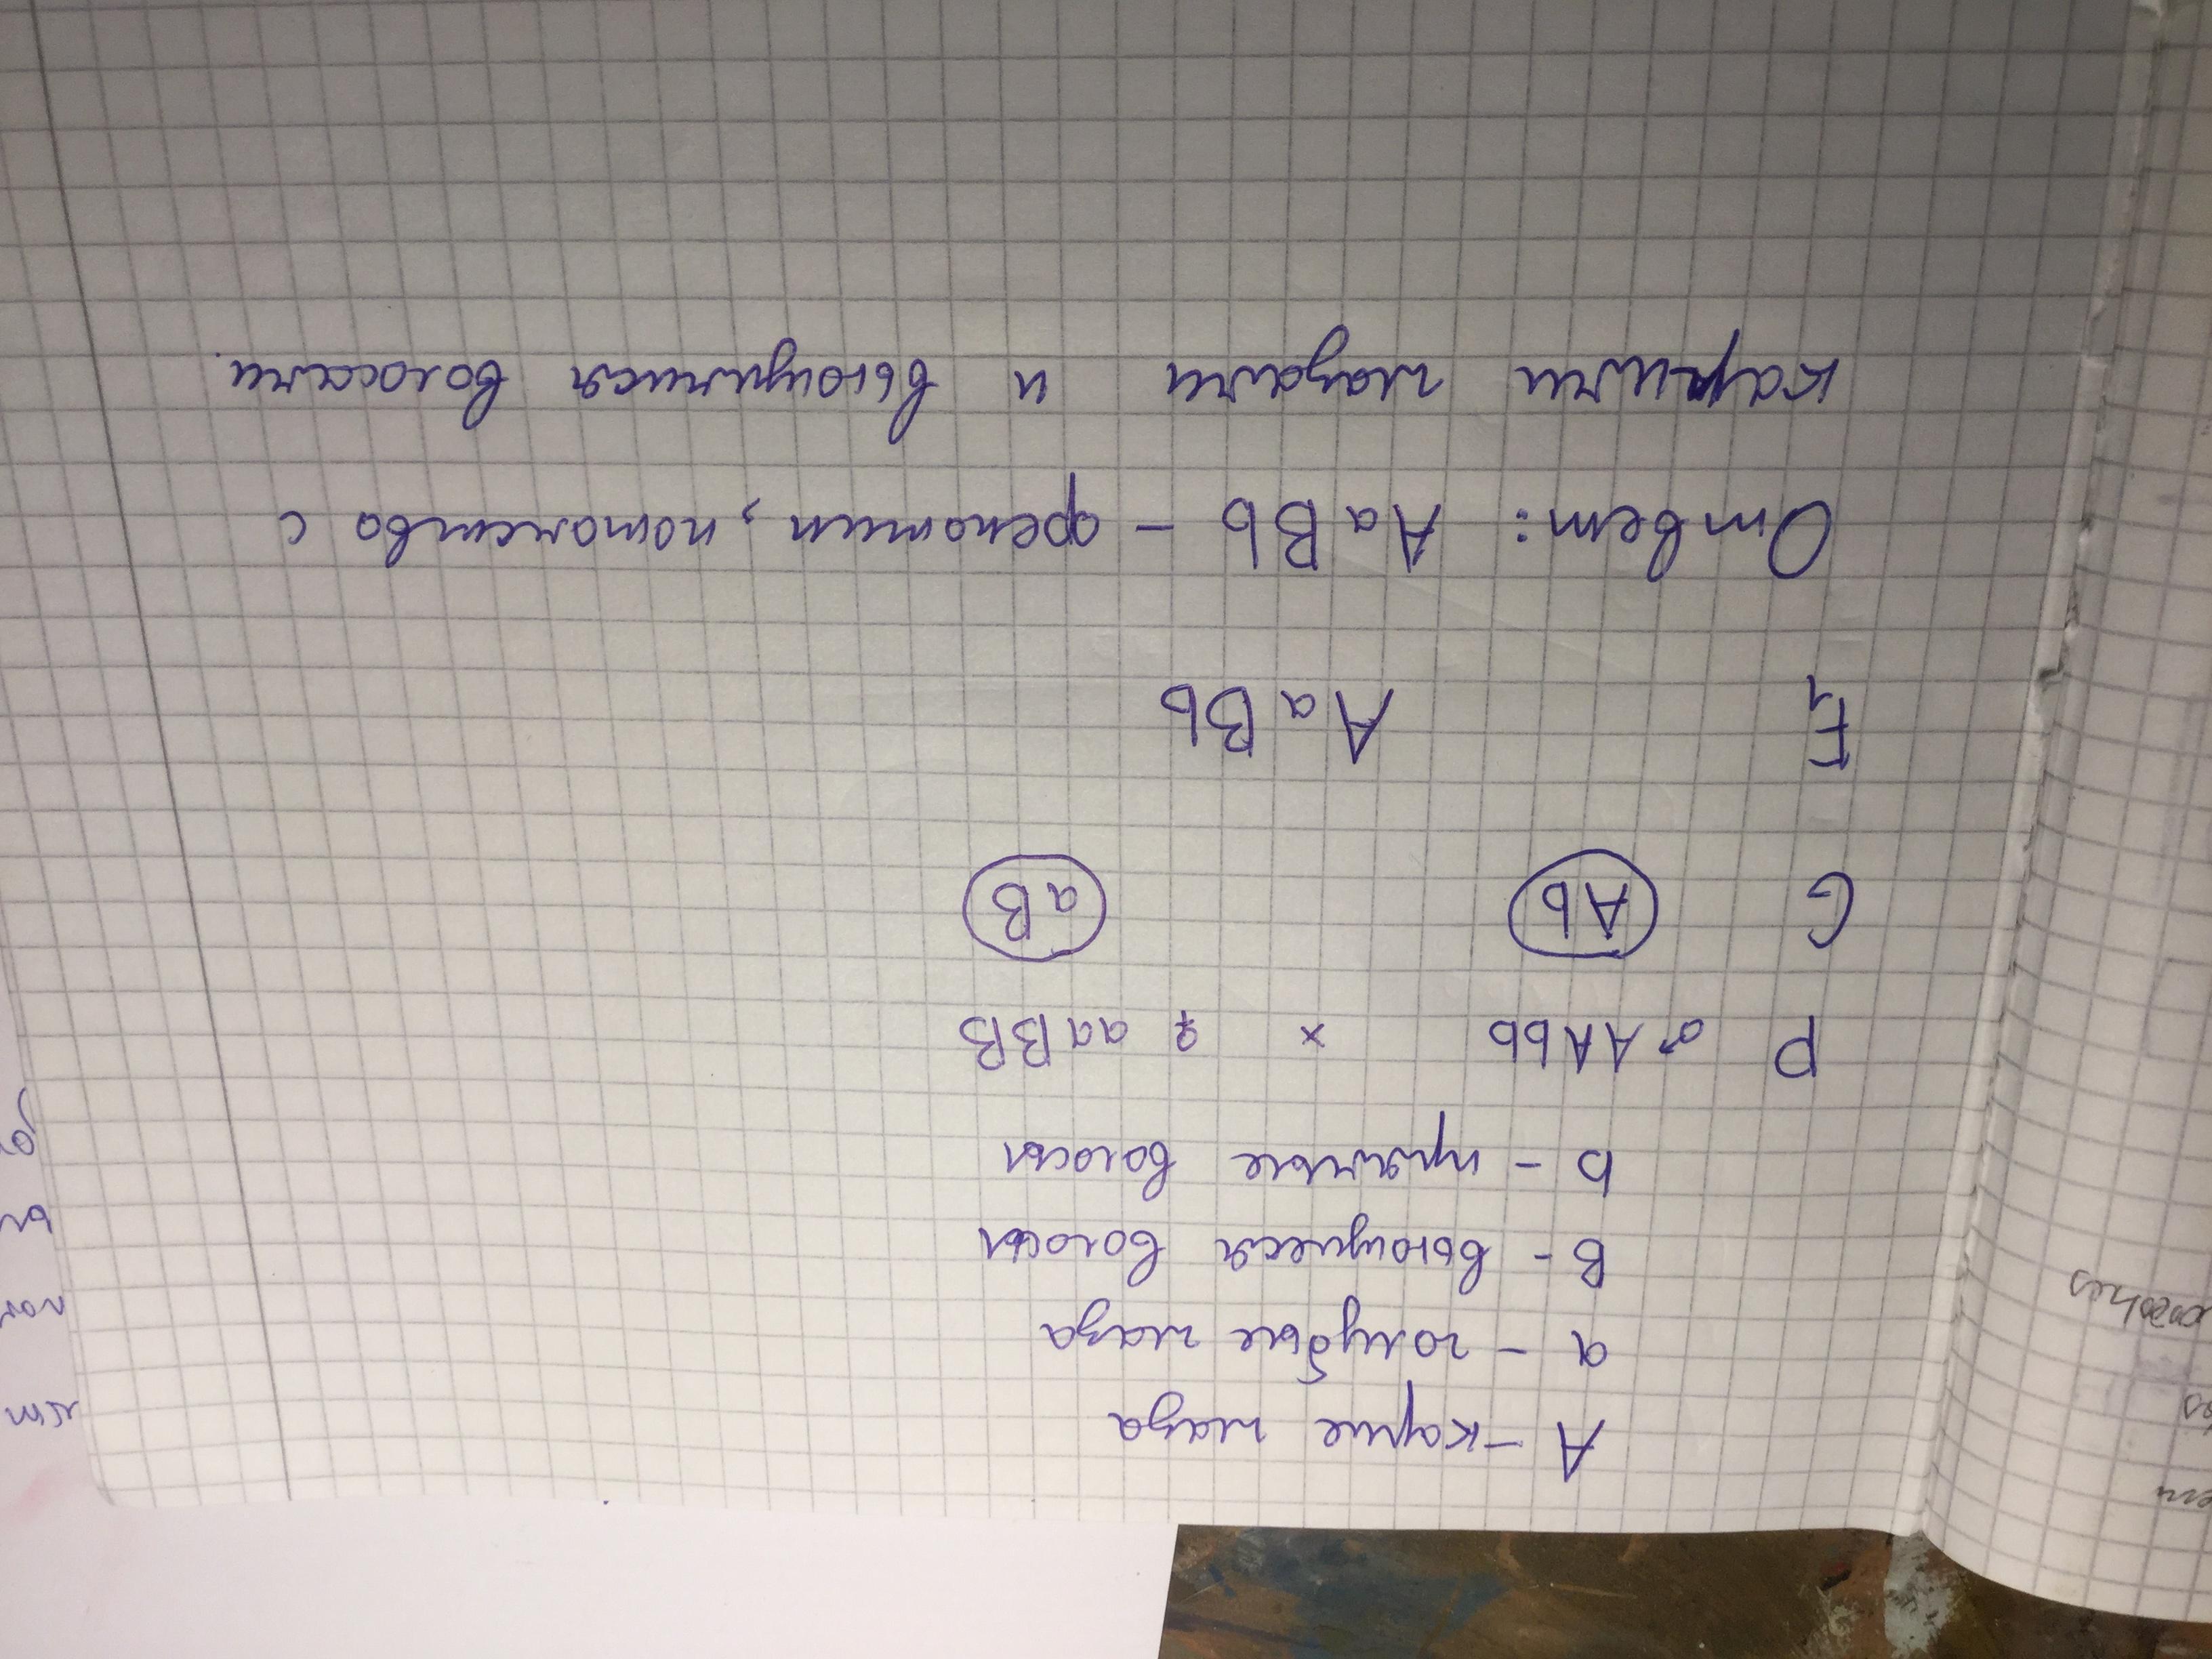 A - карие глаза
a - голубые глаза
B - вьющиеся волосы
b - прямые волосы
P ♂ AAbb × ♀ aaBB
G Ab aB
F₁ AaBb
Ответ: AaBb - фенотип, потомство с
карими глазами и вьющимися волосами.